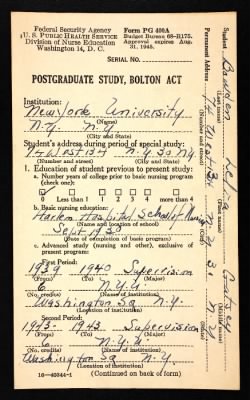 Federal Security Agency
U.S. PUBLIC HEALTH SERVICE
Division of Nurse Education
Washington 14, D. C.
Form PG 400A
Budget Bureau 68-R175.
Approval expires Aug.
31, 1945.
SERIAL NO.
POSTGRADUATE STUDY, BOLTON ACT
Institution:
New York University
(Name)
N.Y. N.Y.
(City and State)
Student's address during period of special study:
West 134 N.Y. 30 N.Y.
(Number and street) (City and State)
1. Education of student previous to present study:
a. Number years of college prior to basic nursing program
(check one):
0 Less than 1 1 2 3 4 4 or more
b. Basic nursing education:
Harlem Hospital School of Nursing
(Name and location of school)
Sept 1930
(Date of completion of basic program)
c. Advanced study (nursing and other), exclusive of
present study:
First Period:
1934 1940 Supervision
(From) (To) (Major)
6 N.Y.U.
(No. credits) (Name of institution)
Washington Sq N.Y.
(Location of institution)
Second Period:
1943 1943 Supervision
(From) (To) (Major)
6 N.Y.U.
(No. credits) (Name of institution)
Washington Sq N.Y.
(Location of institution)
16-40344-1 (Continued on back of form)
Student
(Last name) (First name)
Permanent Address
West 134 N.Y. 30 N.Y.
(Number and street) (City) (State)